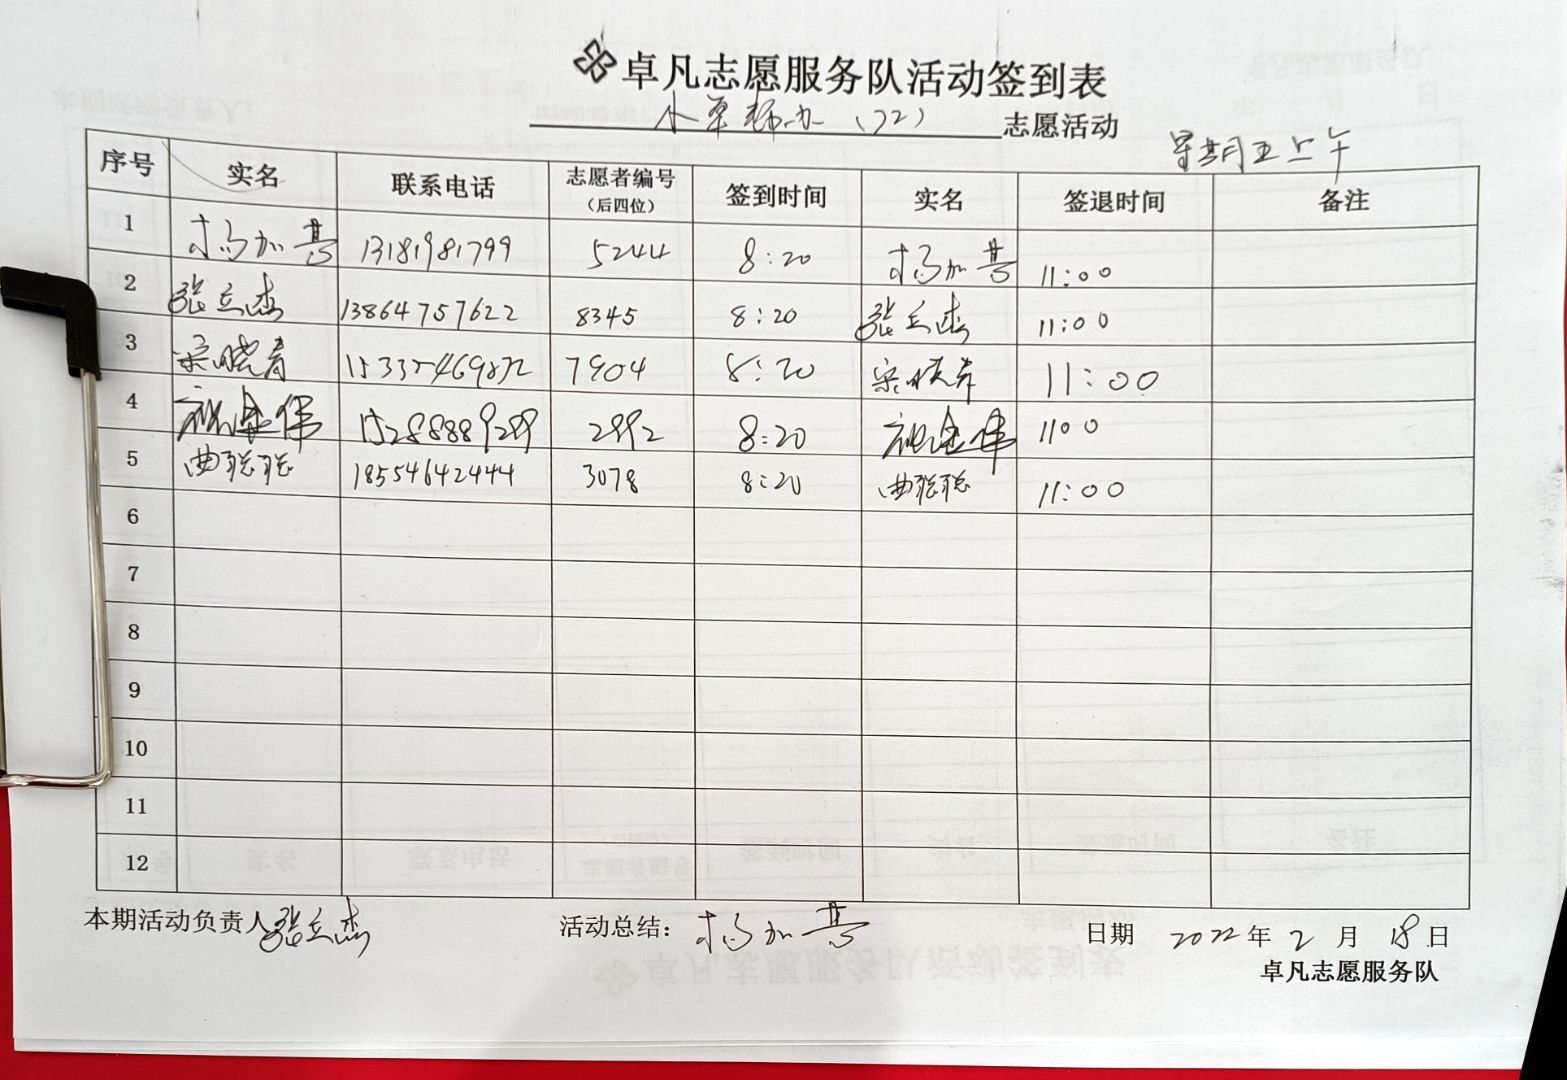 卓凡志愿服务队活动签到表
(72) 志愿活动
星期五上午
序号 实名 联系电话 志愿者编号(后四位) 签到时间 实名 签退时间 备注
1 杨加喜 13181981799 5244 8:20 杨加喜 11:00
2 张立杰 13864757622 8345 8:20 张立杰 11:00
3 7904 8:20 11:00
4 2892 8:20 1100
5 曲聪聪 18554642444 3078 8:20 曲聪聪 11:00
6
7
8
9
10
11
12
本期活动负责人 张立杰 活动总结: 杨加喜 日期 2022年2月18日
卓凡志愿服务队